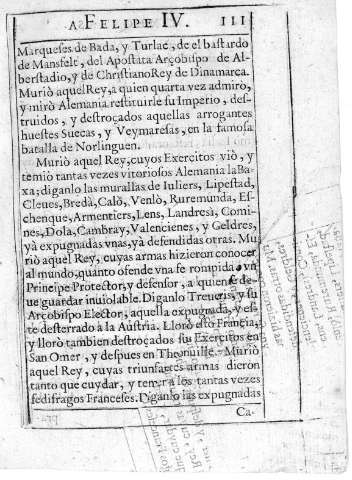 A FELIPE IV. III
Marqueses de Bada, y Turlac, de el bastardo
de Mansfelt, del Apostata Arçobispo de Al-
berstadio, y de Christiano Rey de Dinamarca.
Muriò aquel Rey, a quien quarta vez admirò,
y mirò Alemania restituirle su Imperio, des-
truidos, y destroçados aquellas arrogantes
huestes Suecas, y Veymaresas, en la famosa
batalla de Norlinguen.
Muriò aquel Rey, cuyos Exercitos viò, y
temiò tantas vezes vitoriosos Alemania la Ba-
xa; diganlo las murallas de Iuliers, Lipestad,
Cleues, Bredà, Calò, Venlò, Ruremunda, Es-
chenque, Armentiers, Lens, Landresi, Comi-
nes, Dola, Cambray, Valencienes, y Geldres,
yà expugnadas vnas, yà defendidas otras. Mu-
riò aquel Rey, cuyas armas hizieron conocer
al mundo, quanto ofende vna fe rompida a vn
Principe Protector, y defensor, a quien se de-
ue guardar inuiolable. Diganlo Treueris, y su
Arçobispo Elector, aquella expugnada, y es-
te desterrado a la Austria. Llorò esto Francia,
y llorò tambien destroçados sus Exercitos en
San Omer, y despues en Theonuille. Muriò
aquel Rey, cuyas triunfantes armas dieron
tanto que cuydar, y temer a los tantas vezes
fedifragos Franceses. Diganlo las expugnadas
Ca-